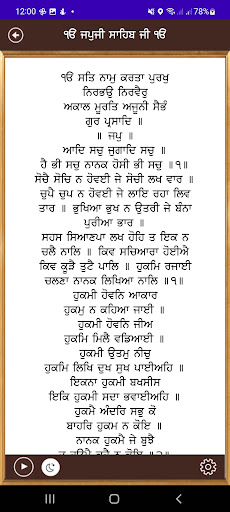 12:00
78%
ੴ ਜਪੁਜੀ ਸਾਹਿਬ ਜੀ ੴ
ੴ ਸਤਿ ਨਾਮੁ ਕਰਤਾ ਪੁਰਖੁ
ਨਿਰਭਉ ਨਿਰਵੈਰੁ
ਅਕਾਲ ਮੂਰਤਿ ਅਜੂਨੀ ਸੈਭੰ
ਗੁਰ ਪ੍ਰਸਾਦਿ ॥
॥ ਜਪੁ ॥
ਆਦਿ ਸਚੁ ਜੁਗਾਦਿ ਸਚੁ ॥
ਹੈ ਭੀ ਸਚੁ ਨਾਨਕ ਹੋਸੀ ਭੀ ਸਚੁ ॥੧॥
ਸੋਚੈ ਸੋਚਿ ਨ ਹੋਵਈ ਜੇ ਸੋਚੀ ਲਖ ਵਾਰ ॥
ਚੁਪੈ ਚੁਪ ਨ ਹੋਵਈ ਜੇ ਲਾਇ ਰਹਾ ਲਿਵ
ਤਾਰ ॥ ਭੁਖਿਆ ਭੁਖ ਨ ਉਤਰੀ ਜੇ ਬੰਨਾ
ਪੁਰੀਆ ਭਾਰ ॥
ਸਹਸ ਸਿਆਣਪਾ ਲਖ ਹੋਹਿ ਤ ਇਕ ਨ
ਚਲੈ ਨਾਲਿ ॥ ਕਿਵ ਸਚਿਆਰਾ ਹੋਈਐ
ਕਿਵ ਕੂੜੈ ਤੁਟੈ ਪਾਲਿ ॥ ਹੁਕਮਿ ਰਜਾਈ
ਚਲਣਾ ਨਾਨਕ ਲਿਖਿਆ ਨਾਲਿ ॥੧॥
ਹੁਕਮੀ ਹੋਵਨਿ ਆਕਾਰ
ਹੁਕਮੁ ਨ ਕਹਿਆ ਜਾਈ ॥
ਹੁਕਮੀ ਹੋਵਨਿ ਜੀਅ
ਹੁਕਮਿ ਮਿਲੈ ਵਡਿਆਈ ॥
ਹੁਕਮੀ ਉਤਮੁ ਨੀਚੁ
ਹੁਕਮਿ ਲਿਖਿ ਦੁਖ ਸੁਖ ਪਾਈਅਹਿ ॥
ਇਕਨਾ ਹੁਕਮੀ ਬਖਸੀਸ
ਇਕਿ ਹੁਕਮੀ ਸਦਾ ਭਵਾਈਅਹਿ ॥
ਹੁਕਮੈ ਅੰਦਰਿ ਸਭੁ ਕੋ
ਬਾਹਰਿ ਹੁਕਮ ਨ ਕੋਇ ॥
ਨਾਨਕ ਹੁਕਮੈ ਜੇ ਬੁਝੈ